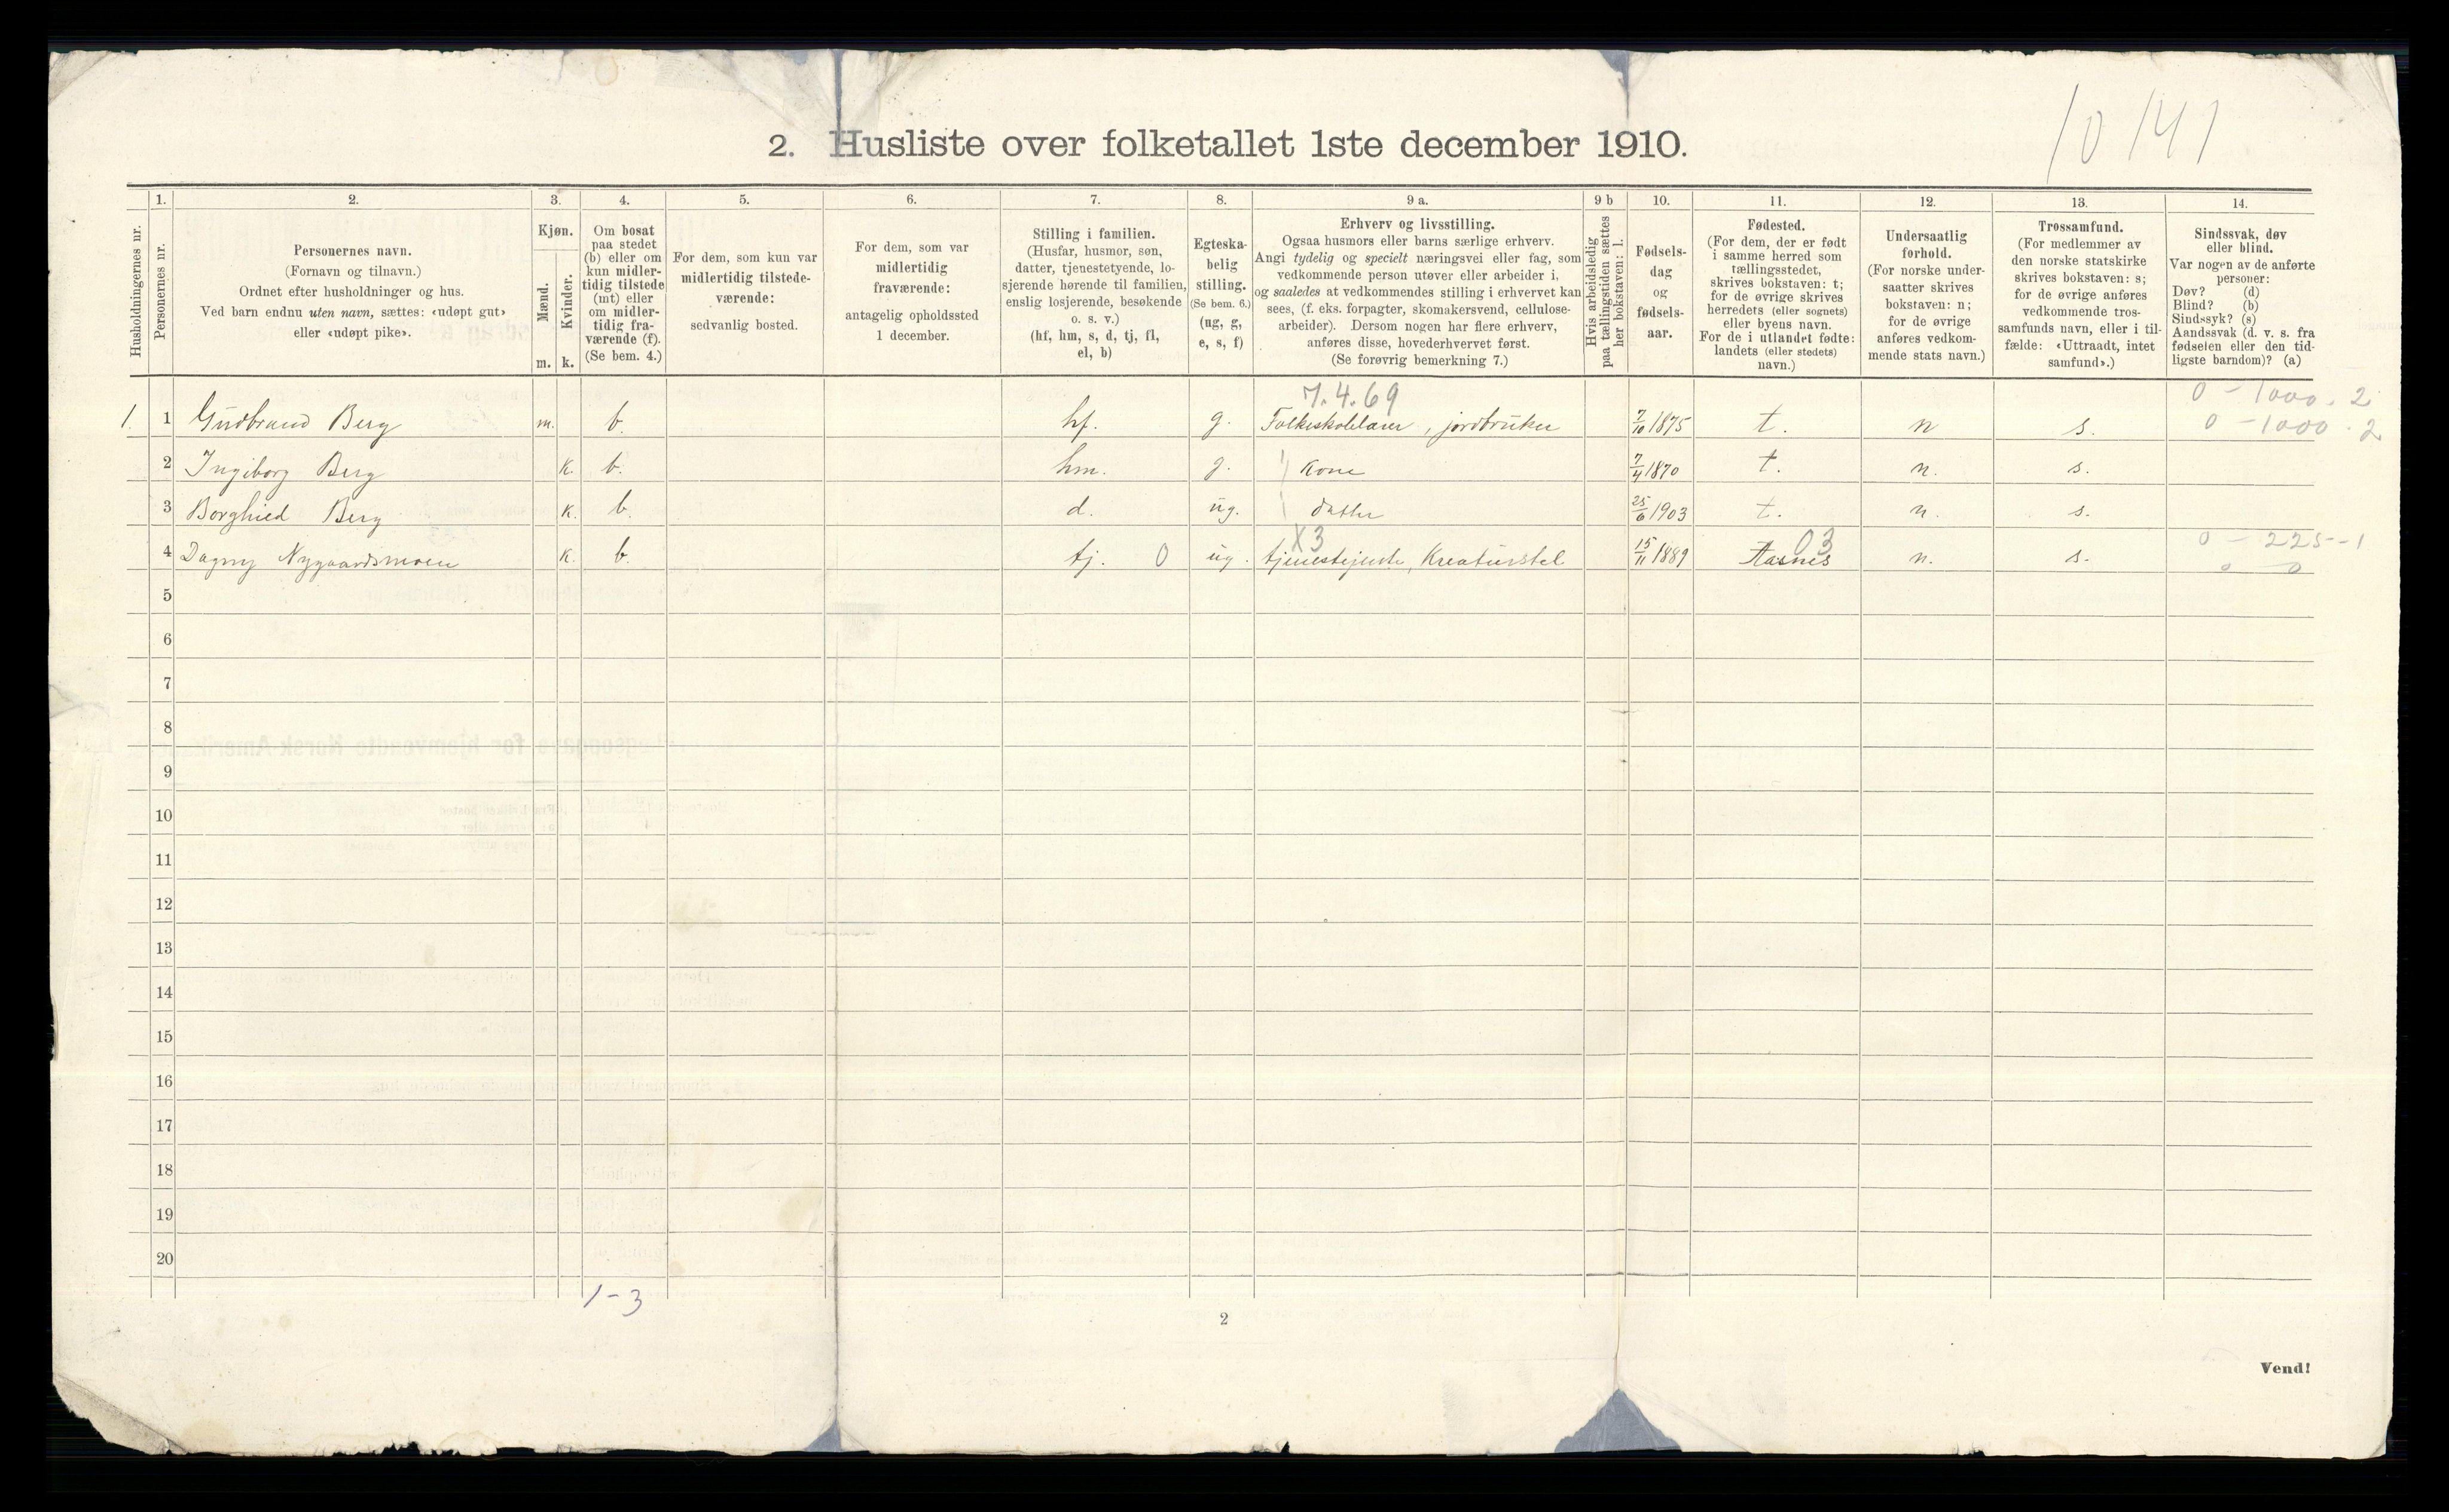 10 141
2. Husliste over folketallet 1ste december 1910.
1. 2. 3. 4. 5. 6. 7. 8. 9 a. 9 b 10. 11. 12. 13. 14.
Husholdningernes nr.
Personernes nr.
Personernes navn.
(Fornavn og tilnavn.)
Ordnet efter husholdninger og hus.
Ved barn endnu uten navn, sættes: «udøpt gut»
eller «udøpt pike».
Kjøn.
Mænd.
m.
Kvinder.
k.
Om bosat
paa stedet
(b) eller om
kun midler-
tidig tilstede
(mt) eller
om midler-
tidig fra-
værende (f).
(Se bem. 4.)
For dem, som kun var
midlertidig tilstede-
værende:
sedvanlig bosted.
For dem, som var
midlertidig
fraværende:
antagelig opholdssted
1 december.
Stilling i familien.
(Husfar, husmor, søn,
datter, tjenestetyende, lo-
sjerende hørende til familien,
enslig losjerende, besøkende
o. s. v.)
(hf, hm, s, d, tj, fl,
el, b)
Egteska-
belig
stilling.
(Se bem. 6.)
(ug, g,
e, s, f)
Erhverv og livsstilling.
Ogsaa husmors eller barns særlige erhverv.
Angi tydelig og specielt næringsvei eller fag, som
vedkommende person utøver eller arbeider i,
og saaledes at vedkommendes stilling i erhvervet kan
sees, (f. eks. forpagter, skomakersvend, cellulose-
arbeider). Dersom nogen har flere erhverv,
anføres disse, hovederhvervet først.
(Se forøvrig bemerkning 7.)
Hvis arbeidsledig
paa tællingstiden sættes
her bokstaven: l.
Fødsels-
dag
og
fødsels-
aar.
Fødested.
(For dem, der er født
i samme herred som
tællingsstedet,
skrives bokstaven: t;
for de øvrige skrives
herredets (eller sognets)
eller byens navn.
For de i utlandet fødte:
landets (eller stedets)
navn.)
Undersaatlig
forhold.
(For norske under-
saatter skrives
bokstaven: n;
for de øvrige
anføres vedkom-
mende stats navn.)
Trossamfund.
(For medlemmer av
den norske statskirke
skrives bokstaven: s;
for de øvrige anføres
vedkommende tros-
samfunds navn, eller i til-
fælde: «Uttraadt, intet
samfund».)
Sindssvak, døv
eller blind.
Var nogen av de anførte
personer:
Døv? (d)
Blind? (b)
Sindssyk? (s)
Aandssvak (d. v. s. fra
fødselen eller den tid-
ligste barndom)? (a)
7.4.69 0 - 1000. 2
1. 1 Gudbrand Berg m. b. hf. g. Folkeskolelærer, jordbruker 7/10 1875 t. n s. 0 - 1000 . 2
2 Ingiborg Berg k. b. hm. g. kone 7/4 1870 t. n. s.
3 Borghied Berg k. b. d. ug. datter 25/6 1903 t. n. s.
X3 03 0 - 225 - 1
4 Dagny Nygaardsmoen k. b. tj. 0 ug. tjenestejente, Kreaturstel 15/11 1889 Aasnes n. s. 0 0
5
6
7
8
9
10
11
12
13
14
15
16
17
18
19
20
1-3
2
Vend!